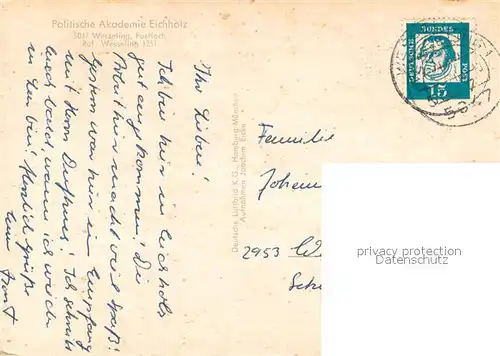 Politische Akademie Eichholz
5047 Wesseling, Postfach
Ruf: Wesseling 1251
Ihr Lieben!
Ich bin hier in Eichholz
gut angekommen. Die
Arbeit hier macht viel Spaß!
Gestern war hier ein Empfang
mit Herrn Dufhues. Ich schreibe
auch bald wann ich wieder
in Leer bin! Herzliche Grüße
Euer
Deutsche Luftbild K.G., Hamburg München
Aufnahmen Joachim Eicke
DEUTSCHE BUNDES POST
15
5047
Familie
Johann
2953
privacy protection
Datenschutz